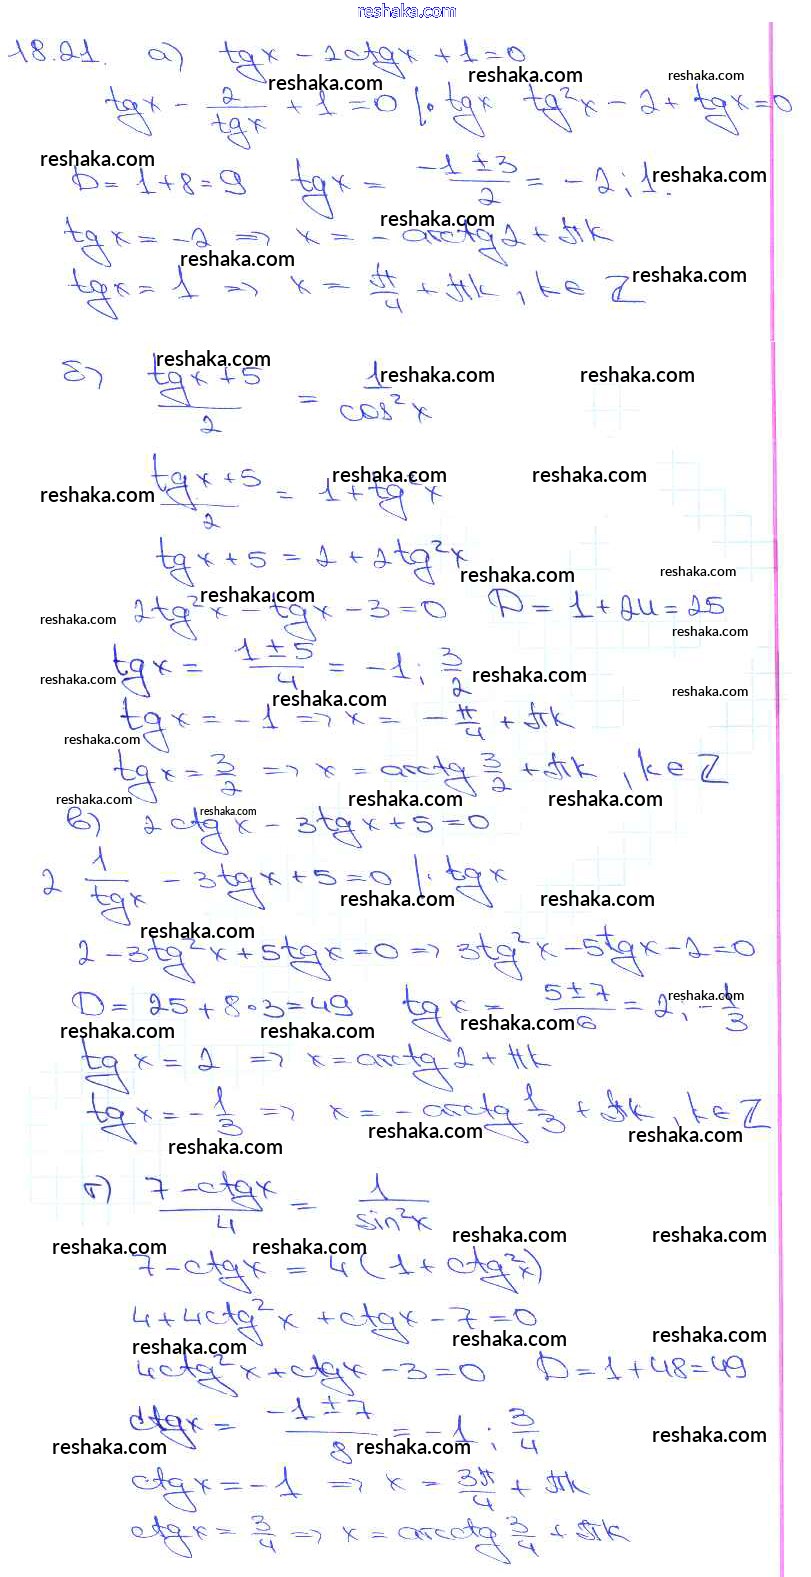 reshaka.com
18.21. а) tgx - 2ctgx + 1 = 0
tgx - 2/tgx + 1 = 0 |· tgx   tg²x - 2 + tgx = 0
D = 1 + 8 = 9   tgx = (-1 ± 3)/2 = -2; 1.
tgx = -2 => x = -arctg2 + πk
tgx = 1 => x = π/4 + πk, k ∈ Z
б) (tgx + 5)/2 = 1/cos²x
(tgx + 5)/2 = 1 + tg²x
tgx + 5 = 2 + 2tg²x
2tg²x - tgx - 3 = 0   D = 1 + 24 = 25
tgx = (1 ± 5)/4 = -1; 3/2
tgx = -1 => x = -π/4 + πk
tgx = 3/2 => x = arctg 3/2 + πk, k ∈ Z
в) 2ctgx - 3tgx + 5 = 0
2 1/tgx - 3tgx + 5 = 0 |· tgx
2 - 3tg²x + 5tgx = 0 => 3tg²x - 5tgx - 2 = 0
D = 25 + 8·3 = 49   tgx = (5 ± 7)/6 = 2; -1/3
tgx = 2 => x = arctg2 + πk
tgx = -1/3 => x = -arctg 1/3 + πk, k ∈ Z
г) (7 - ctgx)/4 = 1/sin²x
7 - ctgx = 4(1 + ctg²x)
4 + 4ctg²x + ctgx - 7 = 0
4ctg²x + ctgx - 3 = 0   D = 1 + 48 = 49
ctgx = (-1 ± 7)/8 = -1; 3/4
ctgx = -1 => x = 3π/4 + πk
ctgx = 3/4 => x = arcctg 3/4 + πk